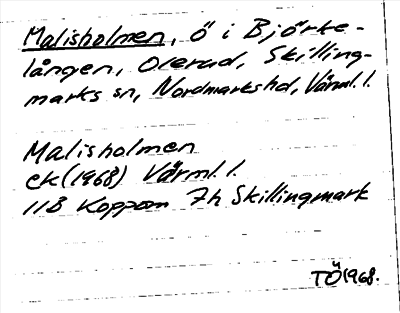 Malisholmen, ö i Björke-
lången, Olerud, Skilling-
marks sn, Nordmarkshd, Värml. l.
Malisholmen
ek (1968) Värml. l.
11B Koppom 7h Skillingmark
TÖ 1968.